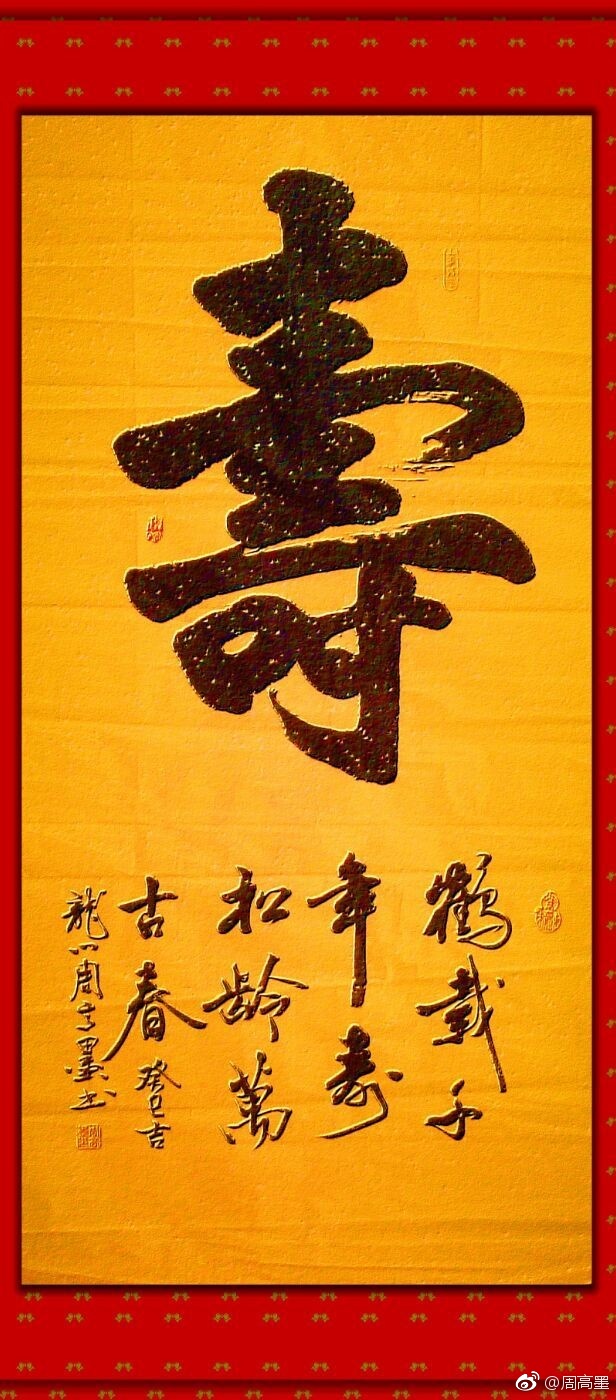 壽
鶴載千
年壽
松龄萬
古春 癸巳吉
龍川周高墨书
@周高墨